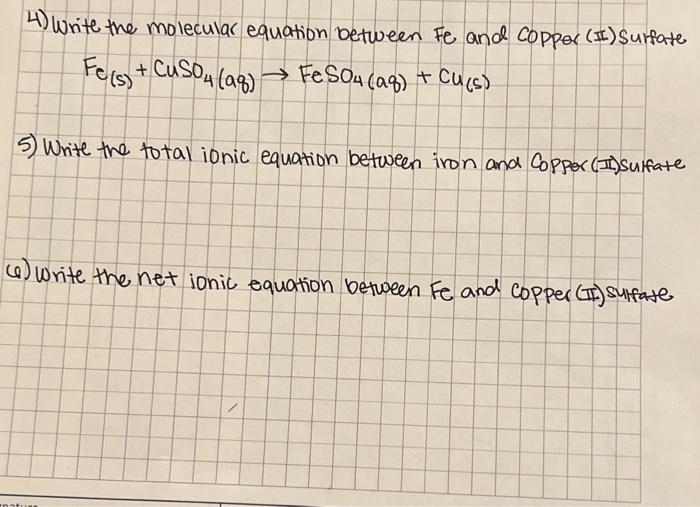 4) Write the molecular equation between Fe and Copper (II) Surfate
Fe(s) + CuSO4 (aq) → FeSO4 (aq) + Cu(s)
5) Write the total ionic equation between iron and Copper (II) sulfate
6) write the net ionic equation between Fe and Copper (II) surfate